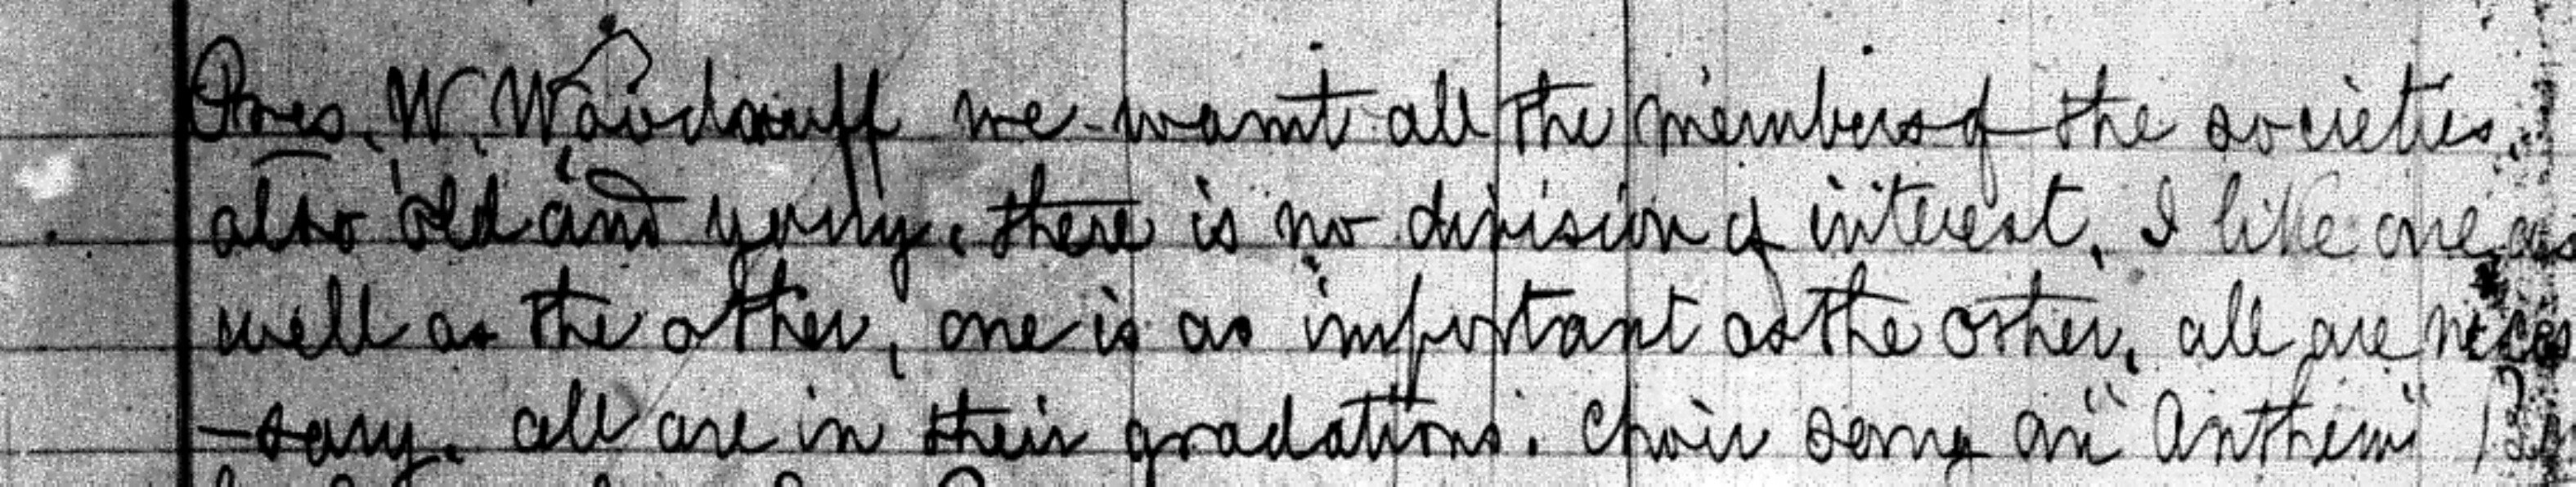 Pres. W. Woodruff we want all the members of the societies,
also old and young, there is no division of interest, I like one as
well as the other, one is as important as the other, all are neces
-sary. all are in their gradations. Choir song an "Anthem"